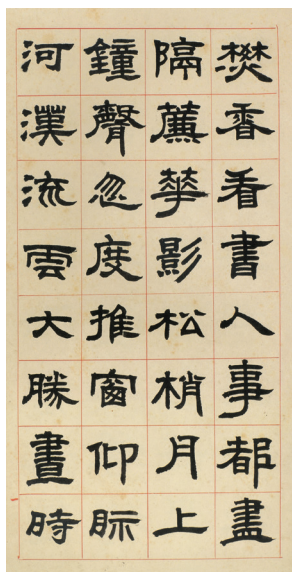 焚香看書人事都盡
隔簾華影松梢月上
鐘聲忽度推窗仰眎
河漢流雲大勝晝時